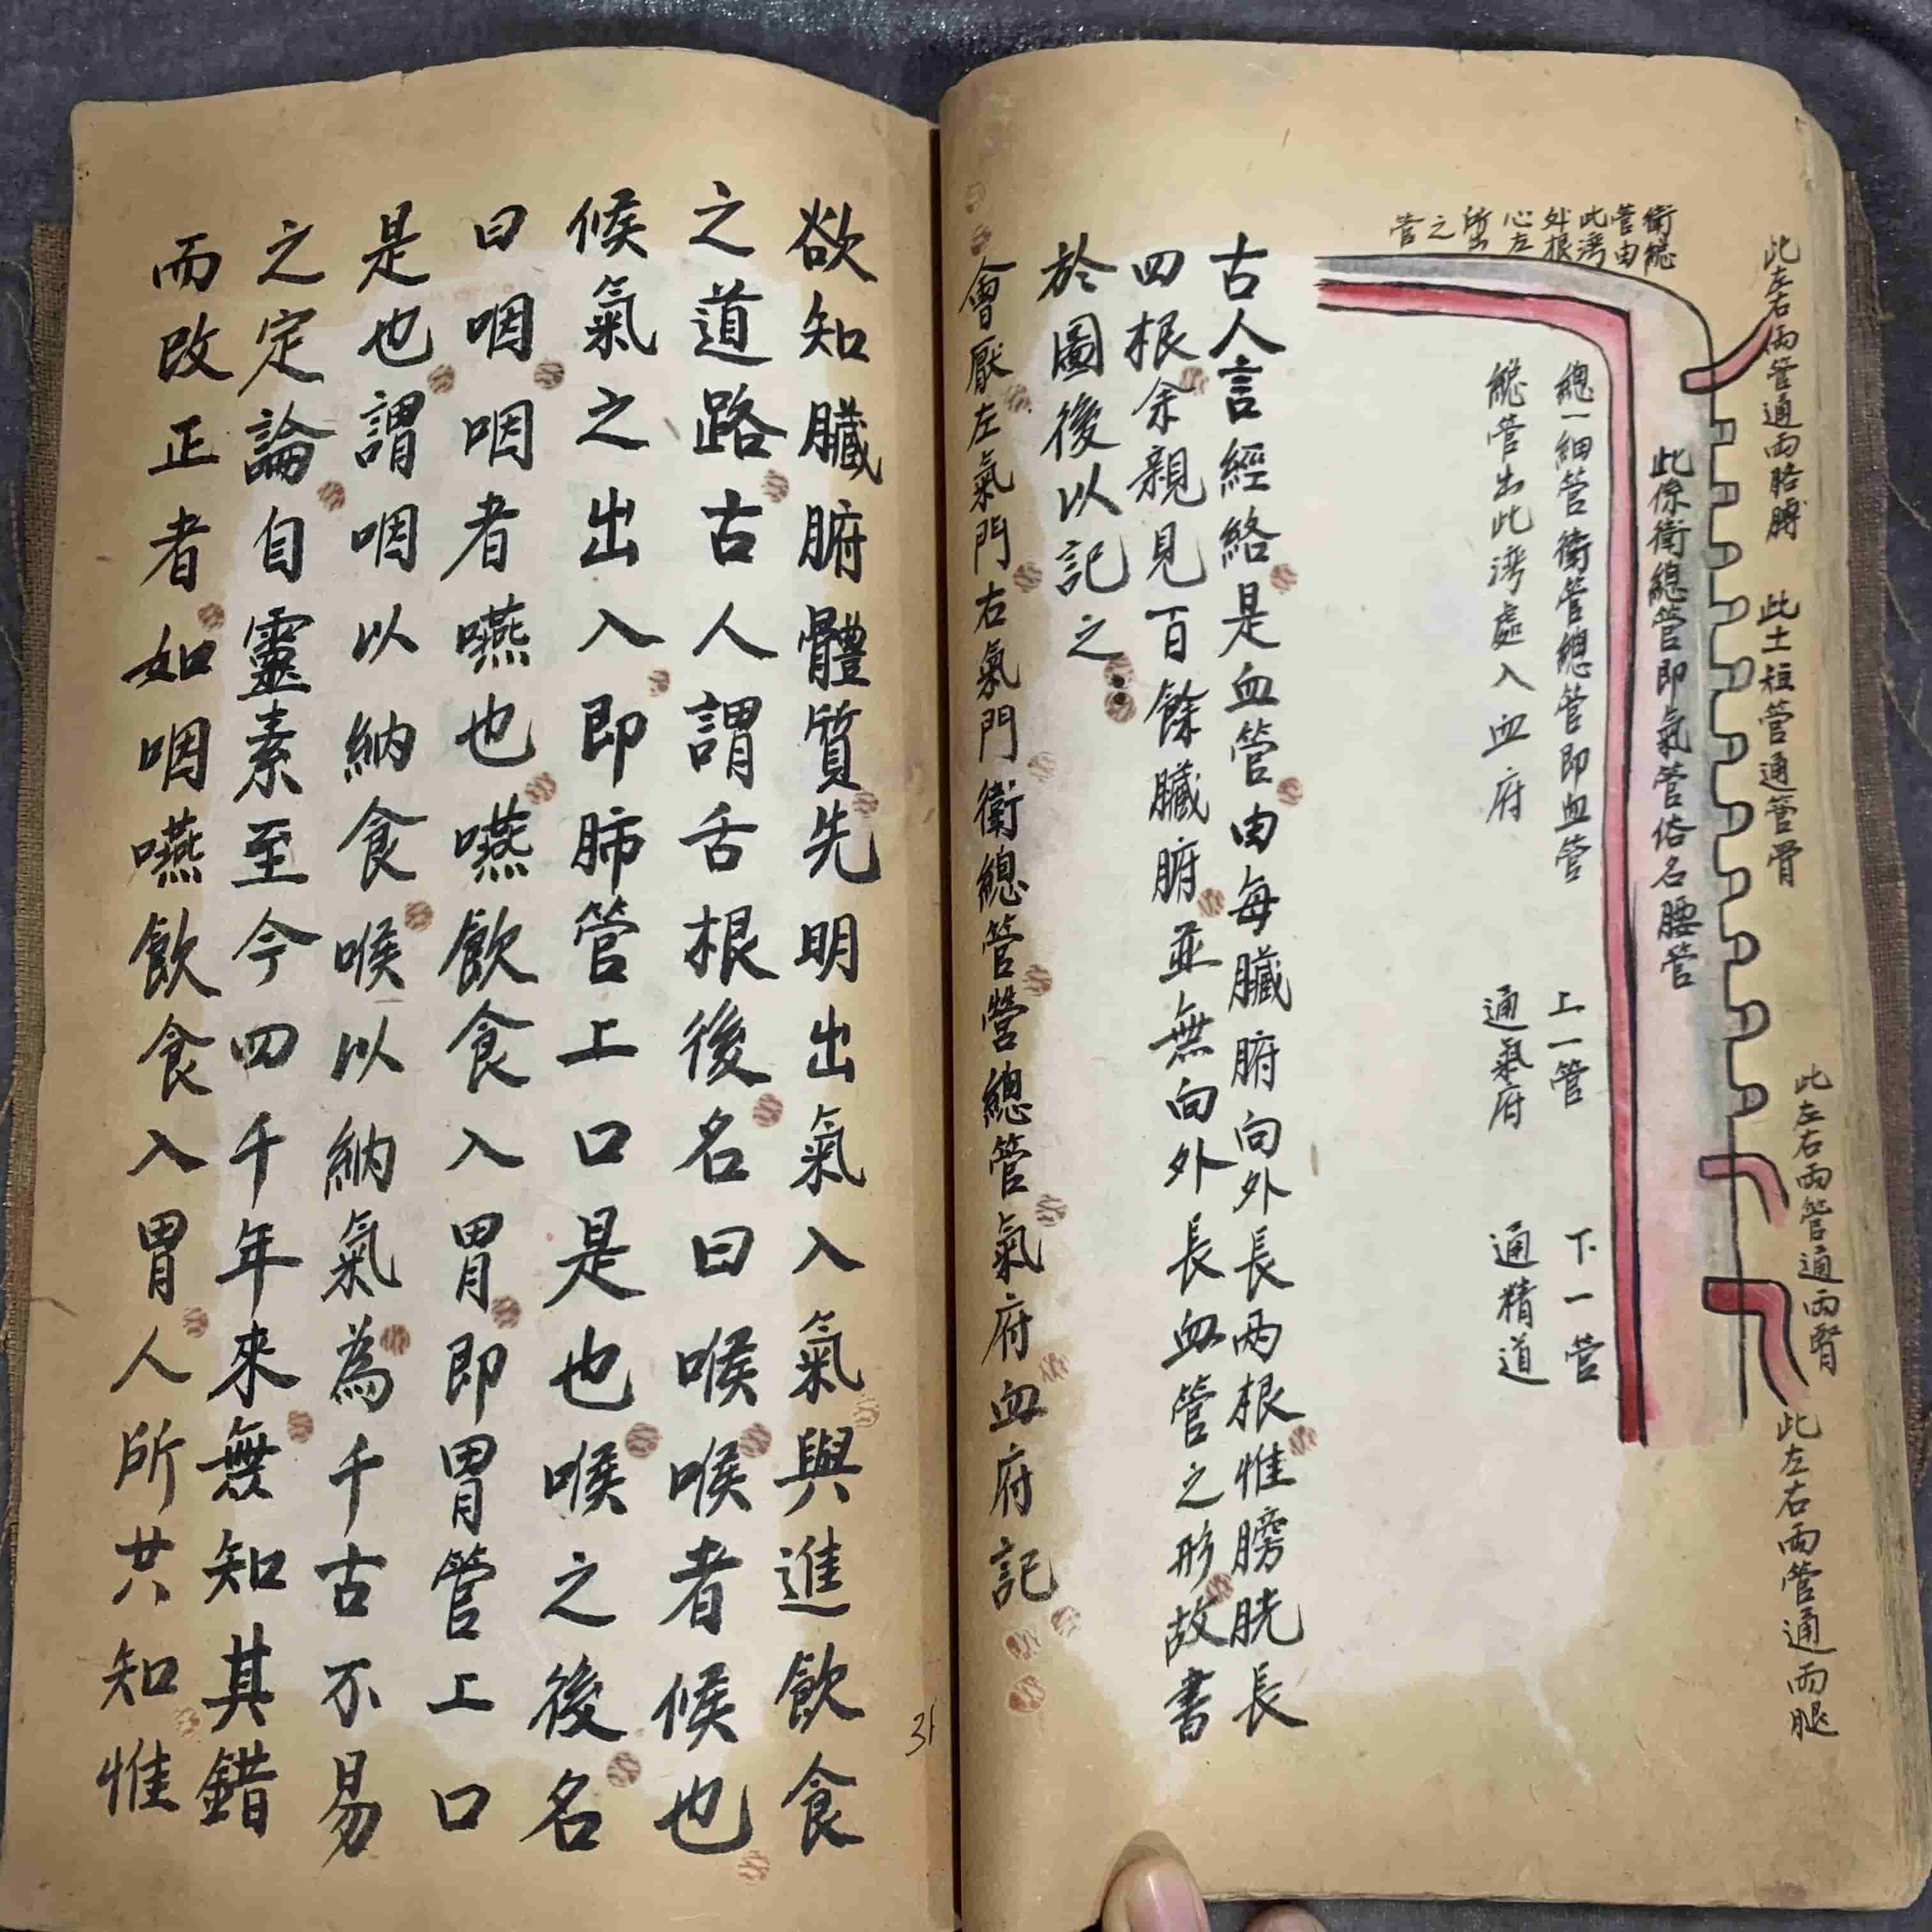 此左右兩管通兩胳膊
此土短管通管骨
此左右兩管通兩腎
此左右兩管通兩腿
衛總管由此湾外根心左所出之管
此係衛總管即氣管俗名腰管
總一細管衛管總管即血管
總管出此湾處入血府
上一管
通氣府
下一管
通精道
古人言經絡是血管由每臟腑向外長两根惟膀胱長
四根余親見百餘臟腑並無向外長血管之形故書
於圖後以記之
會厭左氣門右氣門衛總管營總管氣府血府記
欲知臟腑體質先明出氣入氣與進飲食
之道路古人謂舌根後名曰喉喉者候也
候氣之出入即肺管上口是也喉之後名
曰咽咽者嚥也嚥飲食入胃即胃管上口
是也謂咽以納食喉以納氣為千古不易
之定論自靈素至今四千年來無知其錯
而改正者如咽嚥飲食入胃人所共知惟
31